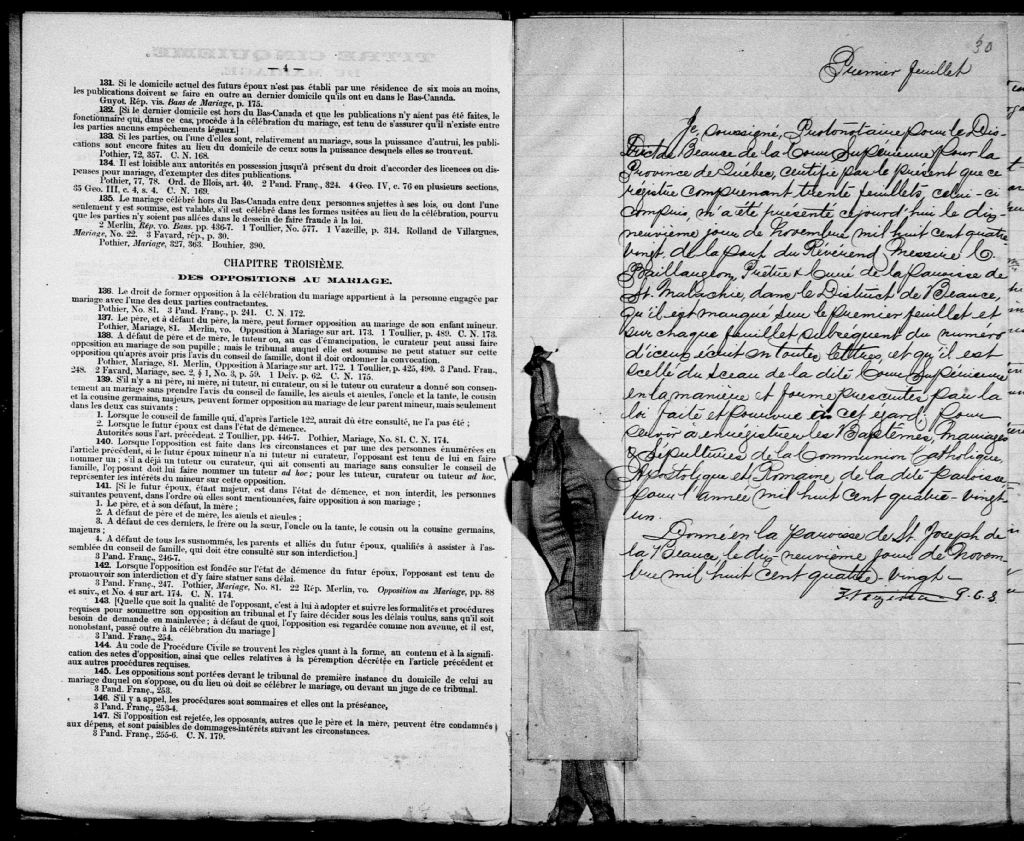 — 4 —
131. Si le domicile actuel des futurs époux n'est pas établi par une résidence de six mois au moins,
les publications doivent se faire en outre au dernier domicile qu'ils ont eu dans le Bas-Canada.
Guyot, Rép. vis. Bans de Mariage, p. 175.
132. [Si le dernier domicile est hors du Bas-Canada et que les publications n'y aient pas été faites, le
fonctionnaire qui, dans ce cas, procède à la célébration du mariage, est tenu de s'assurer qu'il n'existe entre
les parties aucuns empêchements légaux.]
133. Si les parties, ou l'une d'elles sont, relativement au mariage, sous la puissance d'autrui, les publi-
cations sont encore faites au lieu du domicile de ceux sous la puissance desquels elles se trouvent.
Pothier, 72, 357. C. N. 168.
134. Il est loisible aux autorités en possession jusqu'à présent du droit d'accorder des licences ou dis-
penses pour mariage, d'exempter des dites publications.
Pothier, 77, 78. Ord. de Blois, art. 40. 2 Pand. Franç., 324. 4 Geo. IV, c. 76 en plusieurs sections,
35 Geo. III, c. 4, s. 4. C. N. 169.
135. Le mariage célébré hors du Bas-Canada entre deux personnes sujettes à ses lois, ou dont l'une
seulement y est soumise, est valable, s'il est célébré dans les formes usitées au lieu de la célébration, pourvu
que les parties n'y soient pas allées dans le dessein de faire fraude à la loi.
2 Merlin, Rép. vo. Bans. pp. 436-7. 1 Toullier, No. 577. 1 Vazeille, p. 314. Rolland de Villargues,
Mariage, No. 22. 3 Favard, rép., p. 30.
Pothier, Mariage, 327, 363. Bouhier, 390.
CHAPITRE TROISIÈME.
DES OPPOSITIONS AU MARIAGE.
136. Le droit de former opposition à la célébration du mariage appartient à la personne engagée par
mariage avec l'une des deux parties contractantes.
Pothier, No. 81. 3 Pand. Franç., p. 241. C. N. 172.
137. Le père, et à défaut du père, la mère, peut former opposition au mariage de son enfant mineur.
Pothier, Mariage, 81. Merlin, vo. Opposition à Mariage sur art. 173. 1 Toullier, p. 489. C. N. 173.
138. A défaut de père et de mère, le tuteur ou, au cas d'émancipation, le curateur peut aussi faire
opposition au mariage de son pupille ; mais le tribunal auquel elle est soumise ne peut statuer sur cette
opposition qu'après avoir pris l'avis du conseil de famille, dont il doit ordonner la convocation.
Pothier, Mariage, 81. Merlin, Opposition à Mariage sur art. 172. 1 Toullier, p. 425, 490. 3 Pand. Fran.,
248. 2 Favard, Mariage, sec. 2, § 1, No. 3, p. 59. 1 Delv. p. 62. C. N. 175.
139. S'il n'y a ni père, ni mère, ni tuteur, ni curateur, ou si le tuteur ou curateur a donné son consen-
tement au mariage sans prendre l'avis du conseil de famille, les aïeuls et aïeules, l'oncle et la tante, le cousin
et la cousine germains, majeurs, peuvent former opposition au mariage de leur parent mineur, mais seulement
dans les deux cas suivants :
1. Lorsque le conseil de famille qui, d'après l'article 122, aurait dû être consulté, ne l'a pas été ;
2. Lorsque le futur époux est dans l'état de démence.
Autorités sous l'art. précédent. 2 Toullier, pp. 446-7. Pothier, Mariage, No. 81. C. N. 174.
140. Lorsque l'opposition est faite dans les circonstances et par une des personnes énumérées en
l'article précédent, si le futur époux mineur n'a ni tuteur ni curateur, l'opposant est tenu de lui en faire
nommer un ; s'il a déjà un tuteur ou curateur, qui ait consenti au mariage sans consulter le conseil de
famille, l'opposant doit lui faire nommer un tuteur ad hoc ; pour les tuteur, curateur ou tuteur ad hoc,
représenter les intérêts du mineur sur cette opposition.
141. [Si le futur époux, étant majeur, est dans l'état de démence, et non interdit, les personnes
suivantes peuvent, dans l'ordre où elles sont mentionnées, faire opposition à son mariage ;
1. Le père, et à son défaut, la mère ;
2. A défaut de père et de mère, les aïeuls et aïeules ;
3. A défaut de ces derniers, le frère ou la sœur, l'oncle ou la tante, le cousin ou la cousine germains,
majeurs ;
4. A défaut de tous les susnommés, les parents et alliés du futur époux, qualifiés à assister à l'as-
semblée du conseil de famille, qui doit être consulté sur son interdiction.]
3 Pand. Franç., 246-7.
142. Lorsque l'opposition est fondée sur l'état de démence du futur époux, l'opposant est tenu de
promouvoir son interdiction et d'y faire statuer sans délai.
3 Pand. Franç., 247. Pothier, Mariage, No. 81. 22 Rép. Merlin, vo. Opposition au Mariage, pp. 88
et suiv., et No. 4 sur art. 174. C. N. 174.
143. [Quelque que soit la qualité de l'opposant, c'est à lui à adopter et suivre les formalités et procédures
requises pour soumettre son opposition au tribunal et l'y faire décider sous les délais voulus, sans qu'il soit
besoin de demande en mainlevée ; à défaut de quoi, l'opposition est regardée comme non avenue, et il est,
nonobstant, passé outre à la célébration du mariage]
3 Pand. Franç., 254.
144. Au code de Procédure Civile se trouvent les règles quant à la forme, au contenu et à la signifi-
cation des actes d'opposition, ainsi que celles relatives à la péremption décrétée en l'article précédent et
aux autres procédures requises.
145. Les oppositions sont portées devant le tribunal de première instance du domicile de celui au
mariage duquel on s'oppose, ou du lieu où doit se célébrer le mariage, ou devant un juge de ce tribunal.
3 Pand. Franç., 253.
146. S'il y a appel, les procédures sont sommaires et elles ont la préséance,
3 Pand. Franç., 253-4.
147. Si l'opposition est rejetée, les opposants, autres que le père et la mère, peuvent être condamnés
aux dépens, et sont paisibles de dommages-intérêts suivant les circonstances.
3 Pand. Franç., 255-6. C. N. 179.
30
Premier feuillet
Je, soussigné, Protonotaire pour le Dis-
trict de Beauce de la Cour Supérieure pour la
Province de Québec, certifie par le présent que ce
registre comprenant trente feuillets, celui-ci
compris, m'a été présenté ce jourd'hui le dix-
neuvième jour de Novembre mil huit cent quatre
vingt, de la part du Révérend Messire C.
Prêtre & Curé de la paroisse de
St. Malachie, dans le District de Beauce,
qu'il est marqué sur le premier feuillet et
sur chaque feuillet subséquent du numéro
d'iceux écrit en toutes lettres, et qu'il est
scellé du sceau de la dite Cour Supérieure
en la manière et forme prescrites par la
loi faite et pourvue à cet égard, pour
servir à enrégistrer les Baptêmes, Mariages
& Sépultures de la Communion Catholique,
Apostolique et Romaine de la dite paroisse
pour l'année mil huit cent quatre-vingt
un.
Donné en la paroisse de St. Joseph de
la Beauce, le dix neuvième jour de Novem
bre mil huit cent quatre-vingt-
P. C. S.